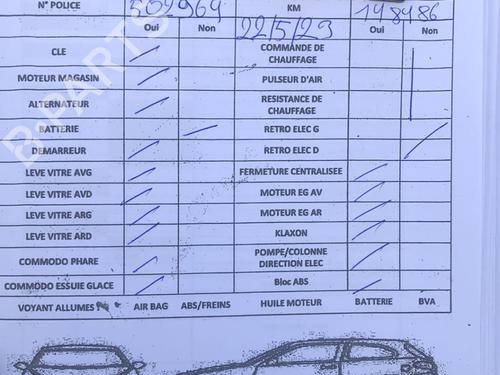 N° POLICE 502964 KM 148486
Oui Non 22/5/23 Oui Non
CLE COMMANDE DE CHAUFFAGE
MOTEUR MAGASIN PULSEUR D'AIR
ALTERNATEUR RESISTANCE DE CHAUFFAGE
BATTERIE RETRO ELEC G
DEMARREUR RETRO ELEC D
LEVE VITRE AVG FERMETURE CENTRALISEE
LEVE VITRE AVD MOTEUR EG AV
LEVE VITRE ARG MOTEUR EG AR
LEVE VITRE ARD KLAXON
COMMODO PHARE POMPE/COLONNE DIRECTION ELEC
COMMODO ESSUIE GLACE Bloc ABS
VOYANT ALLUMES AIR BAG ABS/FREINS HUILE MOTEUR BATTERIE BVA
B-PARTS